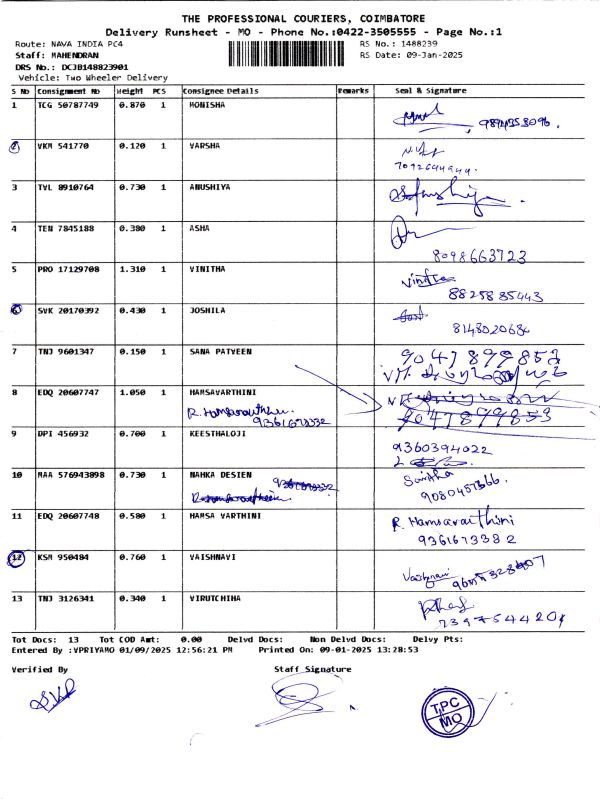 THE PROFESSIONAL COURIERS, COIMBATORE
Delivery Runsheet - MO - Phone No.:0422-3505555 - Page No.:1
Route: NAVA INDIA PC4 RS No.: 1488239
Staff: MAHENDRAN RS Date: 09-Jan-2025
DRS No.: DCJB148823901
Vehicle: Two Wheeler Delivery
S No Consignment No Weight PCS Consignee Details Remarks Seal & Signature
1 TCG 50787749 0.870 1 MONISHA
9894358096.
2 VKM 541770 0.120 1 VARSHA
7092644944.
3 TVL 8910764 0.730 1 ANUSHIYA
4 TEN 7845188 0.380 1 ASHA
8098663723
5 PRO 17129708 1.310 1 VINITHA Vinitha
8825885443
6 SVK 20170392 0.430 1 JOSHILA
8148020684
7 TNJ 9601347 0.150 1 SANA PATVEEN 9047899853
8 EDQ 20607747 1.050 1 HAMSAVARTHINI
R. Hamsavarthini 9047899853
9361673332
9 DPI 456932 0.700 1 KEESTHALOJI
9360394022
10 MAA 576943898 0.730 1 NAHKA DESIEN
9080457366.
11 EDQ 20607748 0.580 1 HAMSA VARTHINI R. Hamsavarthini
9361673332
12 KSM 950484 0.760 1 VAISHNAVI
Vaishnavi
13 TNJ 3126341 0.340 1 VIRUTCHIHA
Tot Docs: 13 Tot COD Amt: 0.00 Delvd Docs: Non Delvd Docs: Delvy Pts:
Entered By :VPRIYAMO 01/09/2025 12:56:21 PM Printed On: 09-01-2025 13:28:53
Verified By Staff Signature
TPC
MO